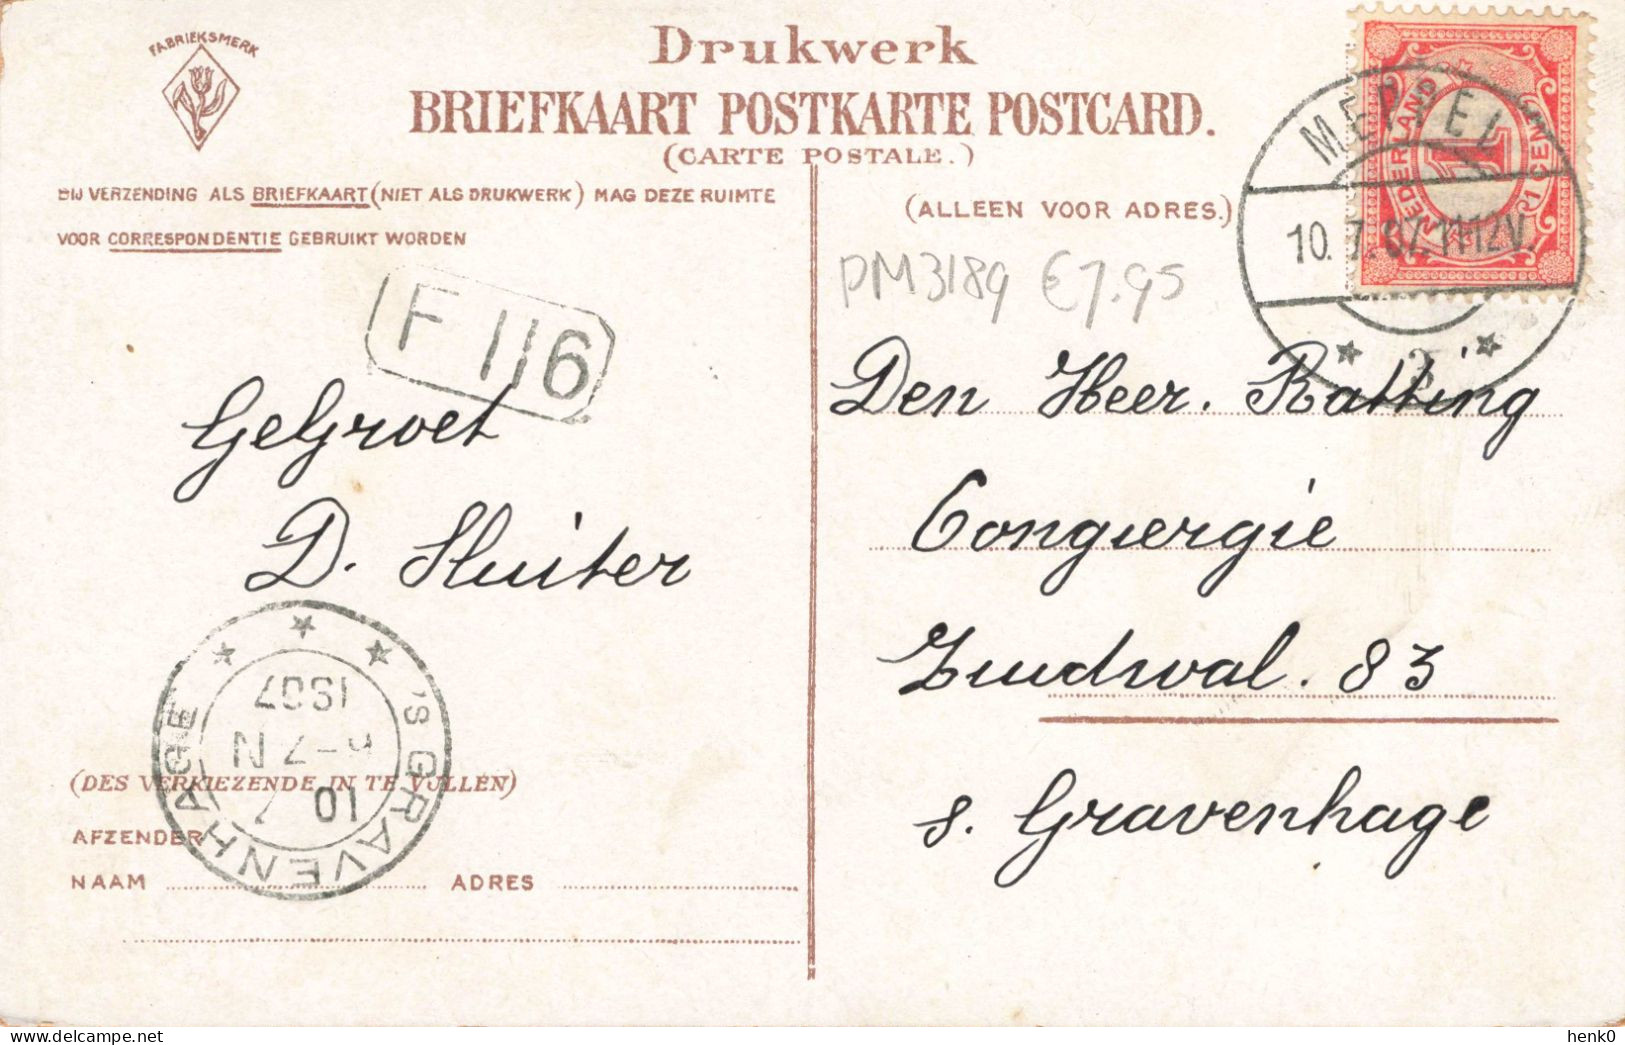 FABRIEKSMERK
Drukwerk
BRIEFKAART POSTKARTE POSTCARD.
(CARTE POSTALE.)
BIJ VERZENDING ALS BRIEFKAART (NIET ALS DRUKWERK) MAG DEZE RUIMTE
VOOR CORRESPONDENTIE GEBRUIKT WORDEN
(ALLEEN VOOR ADRES.)
NEDERLAND
1
1 CENT
MEPPEL
10.7.07.11-12V.
PM3189 €7.95
F 116
GeGroet
D. Sluiter
Den Heer. Ratting
Congiergie
Zuudwal. 83
s. Gravenhage
'S GRAVENHAGE
10
6-7N
1907
(DES VERKIEZENDE IN TE VULLEN)
AFZENDER
NAAM ADRES
henk0